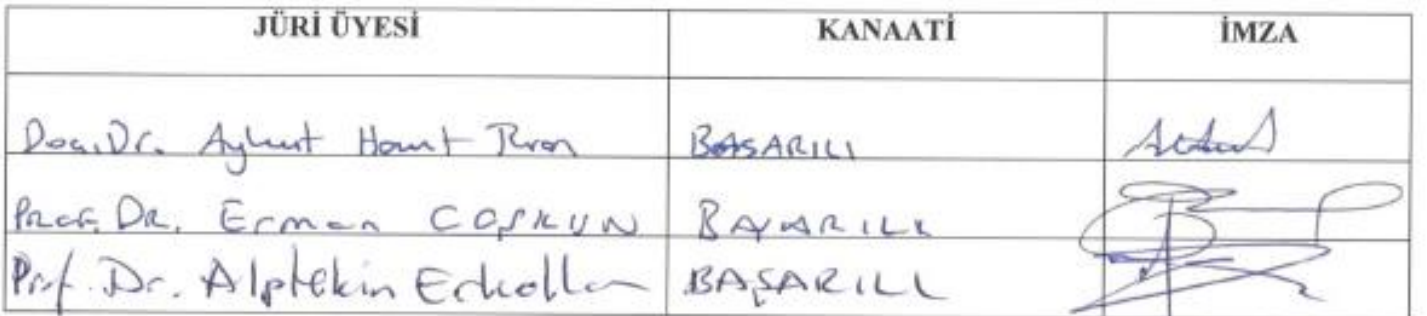 JÜRİ ÜYESİ KANAATİ İMZA
Doç.Dr. Aykut Hamit Turan BAŞARILI
PROF. DR. Erman COŞKUN BAŞARILI
Prof. Dr. Alptekin Erkollar BAŞARILI